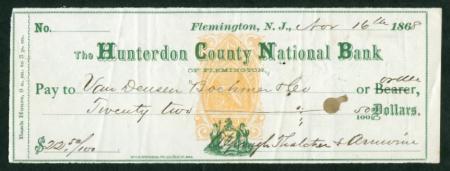 No. Flemington, N. J., Nov 16th 1868
The Hunterdon County National Bank
OF FLEMINGTON,
order
Pay to Van Deusen Boehmer & Co or Bearer,
Twenty two 50/100 Dollars.
$22.50/100
Hough Thatcher &
Bank Hours, 9 a. m. to 3 p. m.